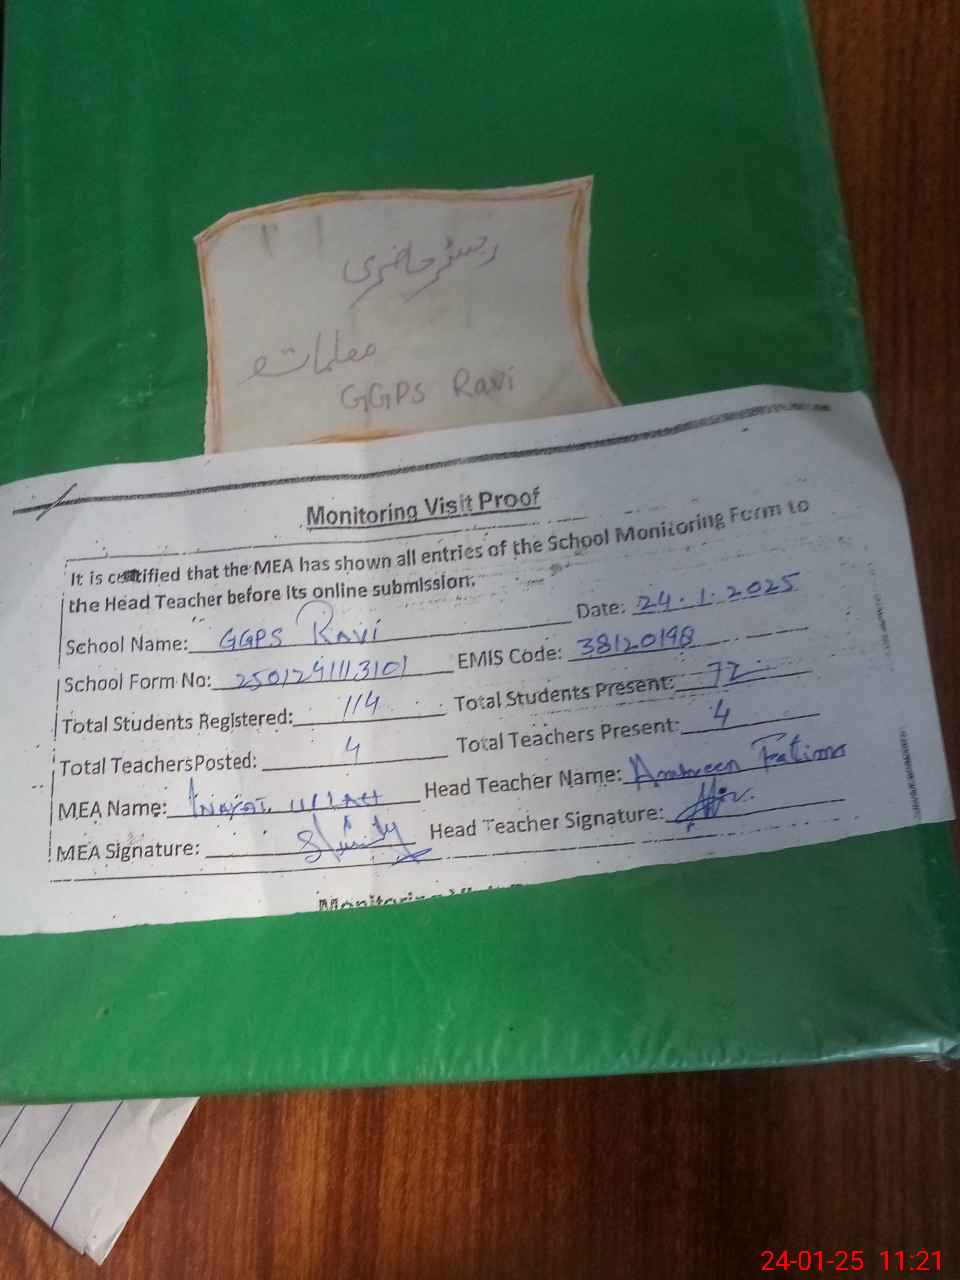 رجسٹر حاضری
معلمات
GGPS Ravi
Monitoring Visit Proof
It is certified that the MEA has shown all entries of the School Monitoring Form to
the Head Teacher before its online submission.
School Name: GGPS Ravi Date: 24.1.2025
School Form No: EMIS Code: 38120198
Total Students Registered: 114 Total Students Present: 72
Total Teachers Posted: 4 Total Teachers Present: 4
MEA Name: Inayat Ullah Head Teacher Name: Ambreen Fatima
MEA Signature: Head Teacher Signature:
24-01-25 11:21